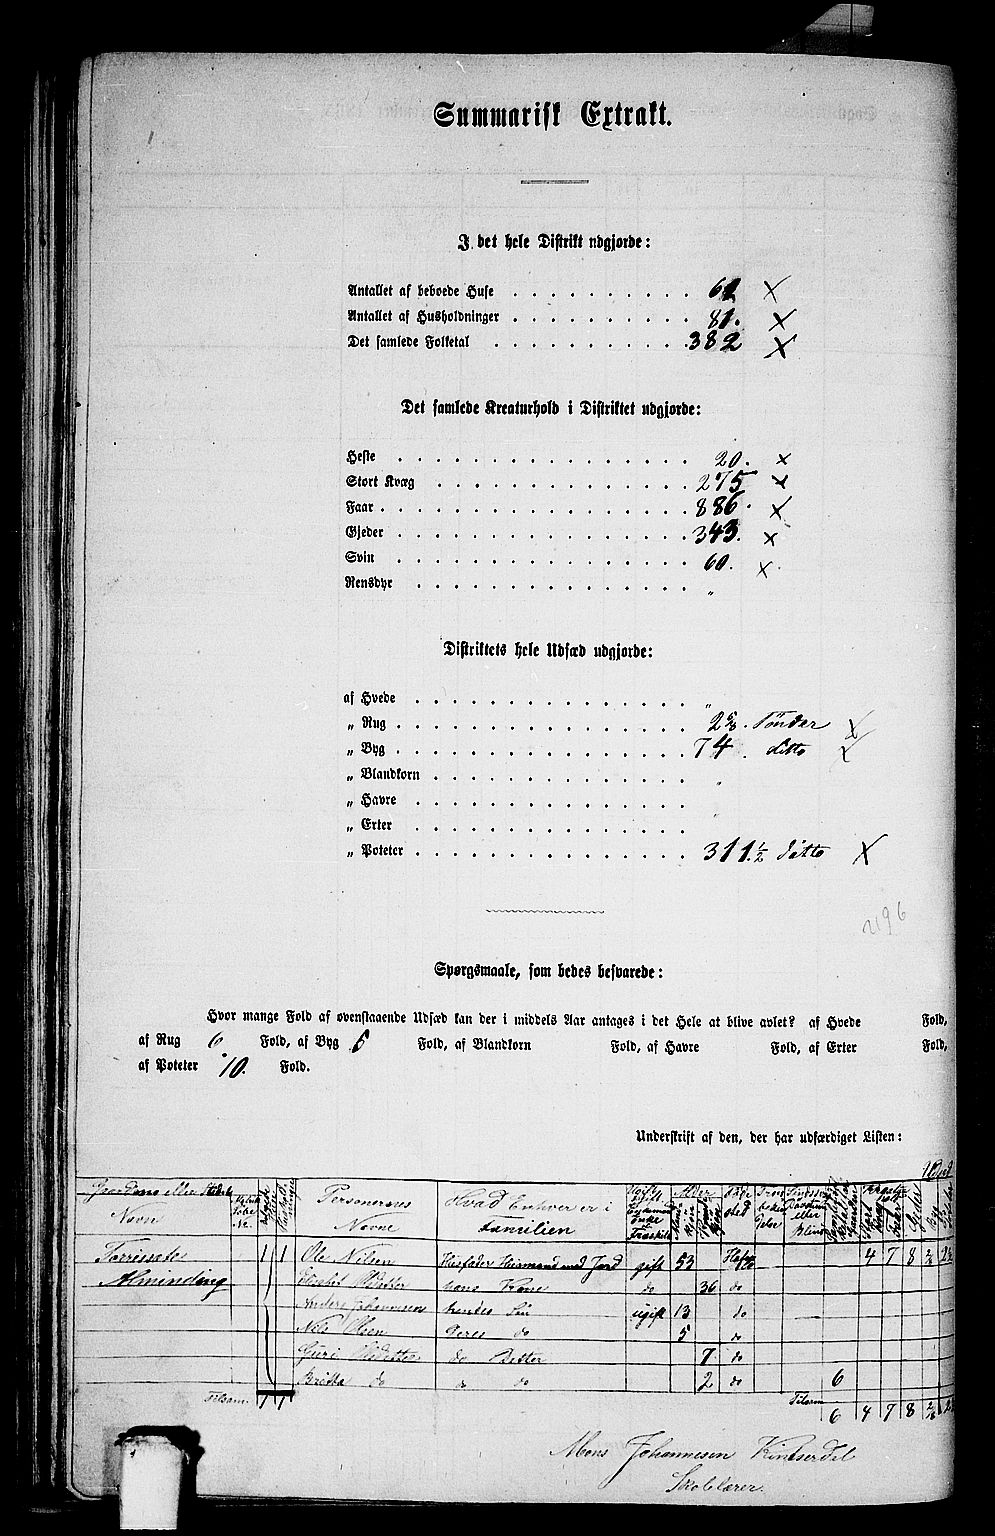 Summarisk Extrakt.
I det hele Distrikt udgjorde:
Antallet af beboede Huse . . . . . . . . . . 62 ×
Antallet af Husholdninger . . . . . . . . . . 81. ×
Det samlede Folketal . . . . . . . . . . . 382 ×
Det samlede Kreaturhold i Distriktet udgjorde:
Heste . . . . . . . . . . . . . . . . 20. ×
Stort Kvæg . . . . . . . . . . . . . . 275 ×
Faar . . . . . . . . . . . . . . . . . 886. ×
Gjeder . . . . . . . . . . . . . . . . 343. ×
Svin . . . . . . . . . . . . . . . . 60. ×
Rensdyr . . . . . . . . . . . . . . . „
Distriktets hele Udsæd udgjorde:
af Hvede . . . . . . . . . . . . . . . „
„ Rug . . . . . . . . . . . . . . . . 2 5/8. Tönder ×
„ Byg . . . . . . . . . . . . . . . . 74. ditto ×
„ Blandkorn . . . . . . . . . . . . . „
„ Havre . . . . . . . . . . . . . . .
„ Erter . . . . . . . . . . . . . . . „
„ Poteter . . . . . . . . . . . . . . . 311.½ ditto ×
2196
Spørgsmaale, som bedes besvarede:
Hvor mange Fold af ovenstaaende Udsæd kan der i middels Aar antages i det Hele at blive avlet? af Hvede Fold,
af Rug 6 Fold, af Byg 6 Fold, af Blandkorn Fold, af Havre Fold, af Erter Fold,
af Poteter 10. Fold.
Underskrift af den, der har udfærdiget Listen:
Gaardens eller Stedets Navn Personernes Navne Hvad Enhver er i Familien Alder
Torrisæter 1 1 Ole Nilsen Husfader Huusmand med Jord gift 53 4 7 8
Alminding hans Kone do 36 do
Anders Johannesen hendes Sön ugift 13 do
Nils Olsen deres do 5 do
Guri Olsdatter do Datter 7 do
Britta do do do 2 do 6
Tilsam. 1 1 Tilsam 6 4 7 8
Mons Johannesen Kintserdal
Skolelærer.